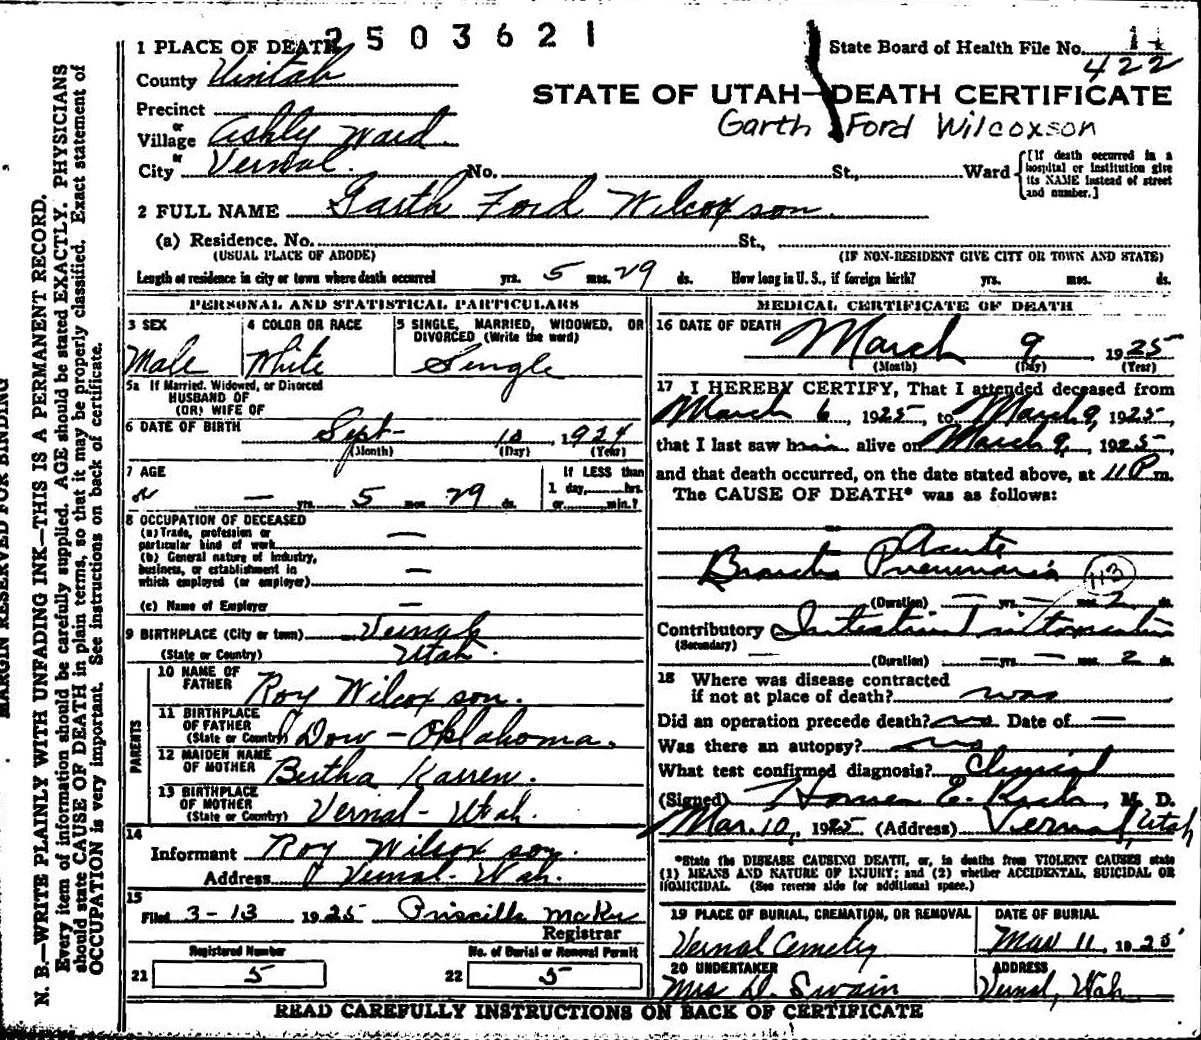 2503621
1 PLACE OF DEATH
State Board of Health File No. 11
422
County Uintah
STATE OF UTAH—DEATH CERTIFICATE
Garth Ford Wilcoxson
Precinct
or
Village Ashly Ward.
or
City Vernal. No. St., Ward
[If death occurred in a hospital or institution give its NAME instead of street and number.]
2 FULL NAME Garth Ford Wilcoxson.
(a) Residence. No. St.,
(USUAL PLACE OF ABODE) (IF NON-RESIDENT GIVE CITY OR TOWN AND STATE)
Length of residence in city or town where death occurred yrs. 5 mos. 29 ds. How long in U. S., if foreign birth? yrs. mos. ds.
PERSONAL AND STATISTICAL PARTICULARS
3 SEX
Male
4 COLOR OR RACE
White
5 SINGLE, MARRIED, WIDOWED, OR
DIVORCED (Write the word)
Single
5a If Married, Widowed, or Divorced
HUSBAND OF
(OR) WIFE OF
6 DATE OF BIRTH Sept- 10, 1924
(Month) (Day) (Year)
7 AGE
— yrs. 5 mos. 29 ds.
If LESS than
1 day, hrs.
or min.?
8 OCCUPATION OF DECEASED
(a) Trade, profession or
particular kind of work —
(b) General nature of industry,
business, or establishment in
which employed (or employer) —
(c) Name of Employer —
9 BIRTHPLACE (City or town) Vernal
(State or Country) Utah.
PARENTS
10 NAME OF
FATHER Roy Wilcoxson.
11 BIRTHPLACE
OF FATHER
(State or Country) Dow - Oklahoma.
12 MAIDEN NAME
OF MOTHER Bertha Karren.
13 BIRTHPLACE
OF MOTHER
(State or Country) Vernal - Utah.
14
Informant Roy Wilcoxson.
Address Vernal - Utah.
15
Filed 3-13 1925 Priscilla
Registrar
Registered Number No. of Burial or Removal Permit
21 5 22 5
MEDICAL CERTIFICATE OF DEATH
16 DATE OF DEATH
March 9 1925
(Month) (Day) (Year)
17 I HEREBY CERTIFY, That I attended deceased from
March 6, 1925, to March 9, 1925,
that I last saw him alive on March 9, 1925,
and that death occurred, on the date stated above, at 11 P m.
The CAUSE OF DEATH* was as follows:
Acute
Broncho Pneumonia 113
(Duration) — yrs. — mos. 2 ds.
Contributory
(Secondary)
(Duration) — yrs. — mos. 2 ds.
18 Where was disease contracted
if not at place of death?
Did an operation precede death? no Date of —
Was there an autopsy? no
What test confirmed diagnosis? Clinical
(Signed) E. M. D.
Mar. 10, 1925 (Address) Vernal, Utah
*State the DISEASE CAUSING DEATH, or, in deaths from VIOLENT CAUSES, state
(1) MEANS AND NATURE OF INJURY; and (2) whether ACCIDENTAL, SUICIDAL OR
HOMICIDAL. (See reverse side for additional space.)
19 PLACE OF BURIAL, CREMATION, OR REMOVAL
Vernal Cemetery
DATE OF BURIAL
Mar 11, 1925
20 UNDERTAKER
Mrs D. Swain
ADDRESS
Vernal, Utah
READ CAREFULLY INSTRUCTIONS ON BACK OF CERTIFICATE
MARGIN RESERVED FOR BINDING
N. B.—WRITE PLAINLY WITH UNFADING INK—THIS IS A PERMANENT RECORD.
Every item of information should be carefully supplied. AGE should be stated EXACTLY. PHYSICIANS
should state CAUSE OF DEATH in plain terms, so that it may be properly classified. Exact statement of
OCCUPATION is very important. See instructions on back of certificate.